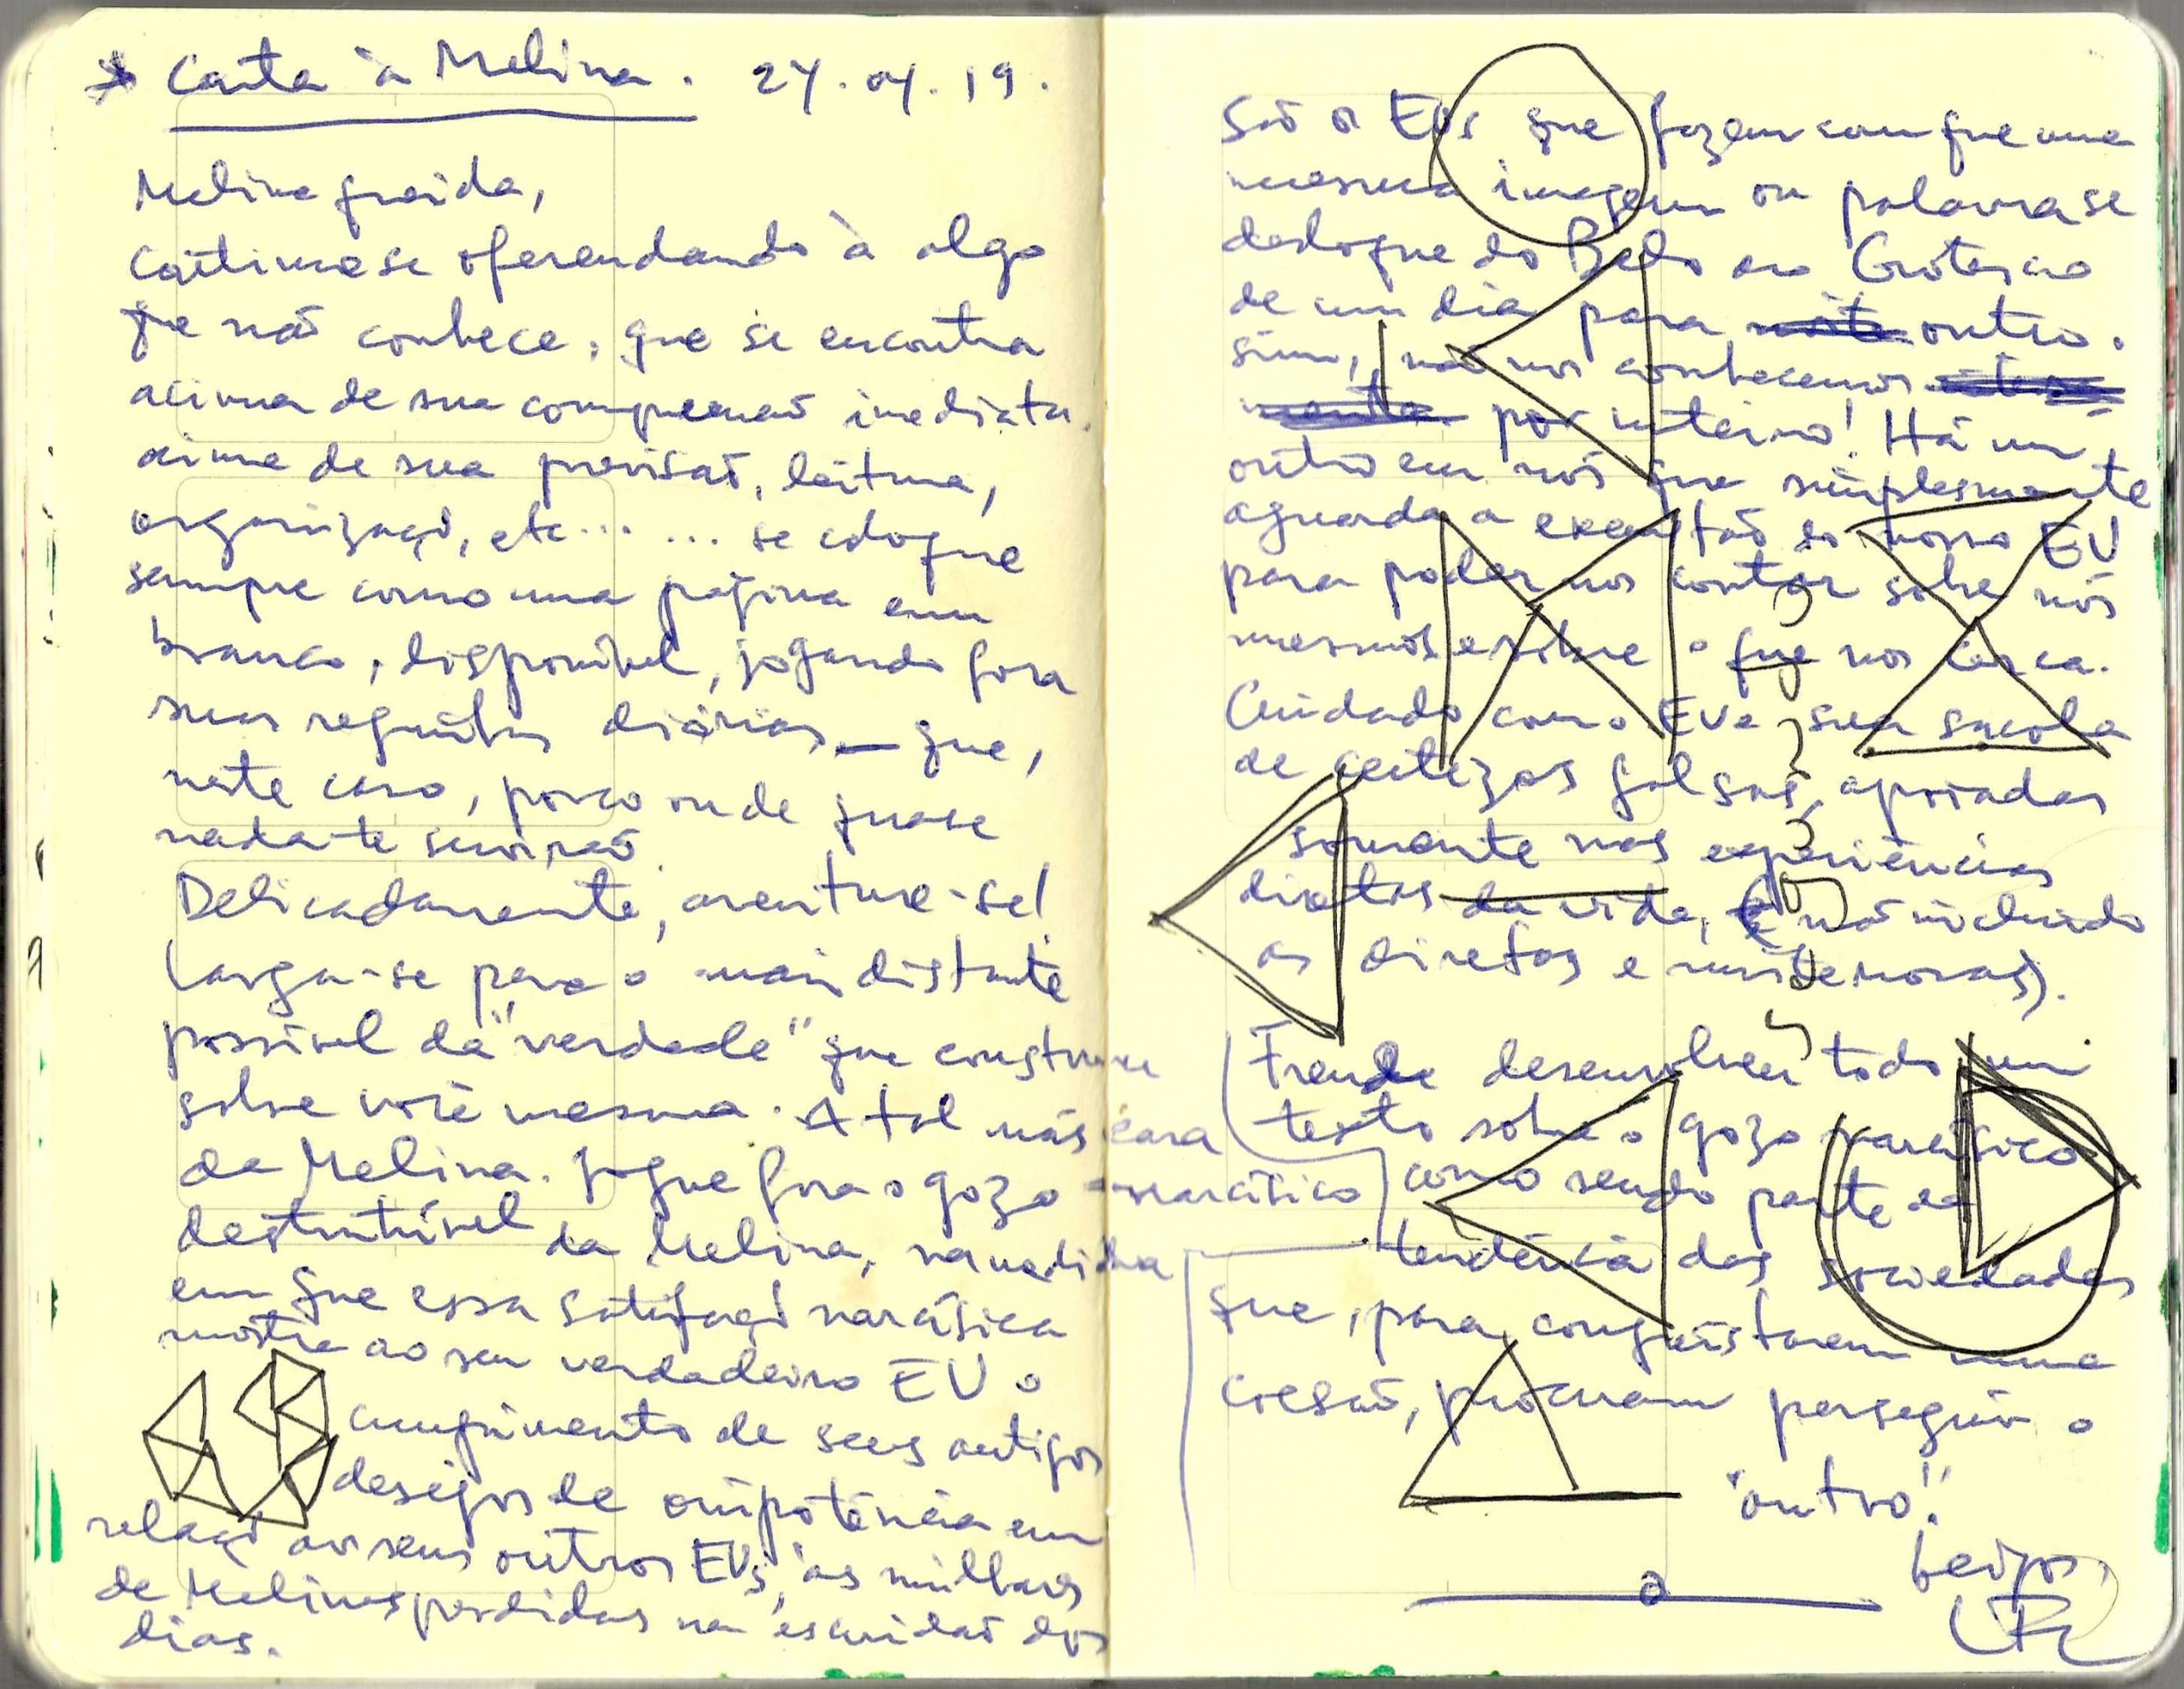 Carta à Melina. 24.04.19.
Melina querida,
continue se oferendando à algo
que não conhece, que se encontra
acima de sua compreensão imediata.
acima de sua previsão, leitura,
organização, etc... ... se coloque
sempre como uma página em
branco, disponível, jogando fora
seus diárias — que,
neste caso, pouco ou de quase
nada te servirão.
Delicadamente, aventure-se!
Larga-se para o mais distante
possível da "verdade" que construiu
sobre você mesma. A tal máscara
da Melina. Jogue fora o gozo narcísico
destrutível da Melina, na medida
em que essa satisfação narcísica
mostre ao seu verdadeiro EU o
cumprimento de seus antigos
desejos de onipotência em
relação aos seus outros EUs, às milhares
de Melinas perdidas na escuridão dos
dias.
São os EUs que fazem com que uma
mesma imagem ou palavra se
desloque do Belo ao Grotesco
de um dia para outro.
Sim, não nos conhecemos
por inteiro! Há um
outro em nós que simplesmente
aguarda a exaustão do nosso EU
para poder nos contar sobre nós
mesmos e sobre o que nos cerca.
Cuidado com o EU e sua sacola
de certezas falsas, apoiadas
somente nas experiências
diretas da vida, (e não incluindo
as diretas e novas).
Freud desenvolveu todo um
texto sobre o gozo narcísico
como sendo parte da
tendência das sociedades
que, para conquistarem uma
coesão, procuram perseguir o
"outro".
beijos,